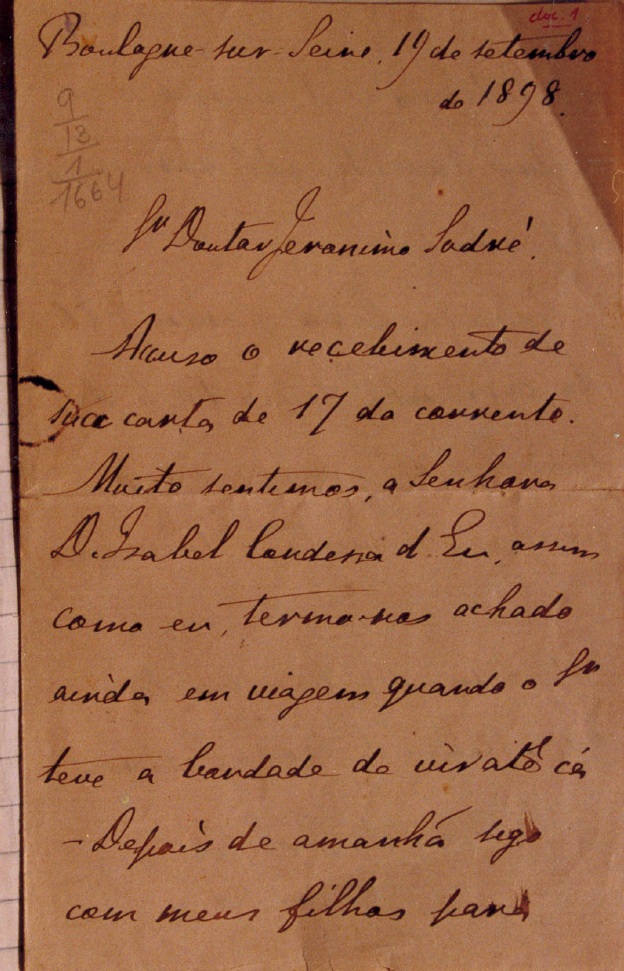 doc. 1
Boulogne-sur-Seine, 19 de setembro
de 1898.
9
13
1
1664
Sr Doutor Jeronimo Sodré.
Acuso o recebimento de
sua carta de 17 do corrente.
Muito sentimos, a Senhora
D. Isabel Condessa d'Eu, assim
como eu, termo-nos achado
ainda em viagem quando o Sr
teve a bondade de vir até cá
- Depois de amanhã sigo
com meus filhos para